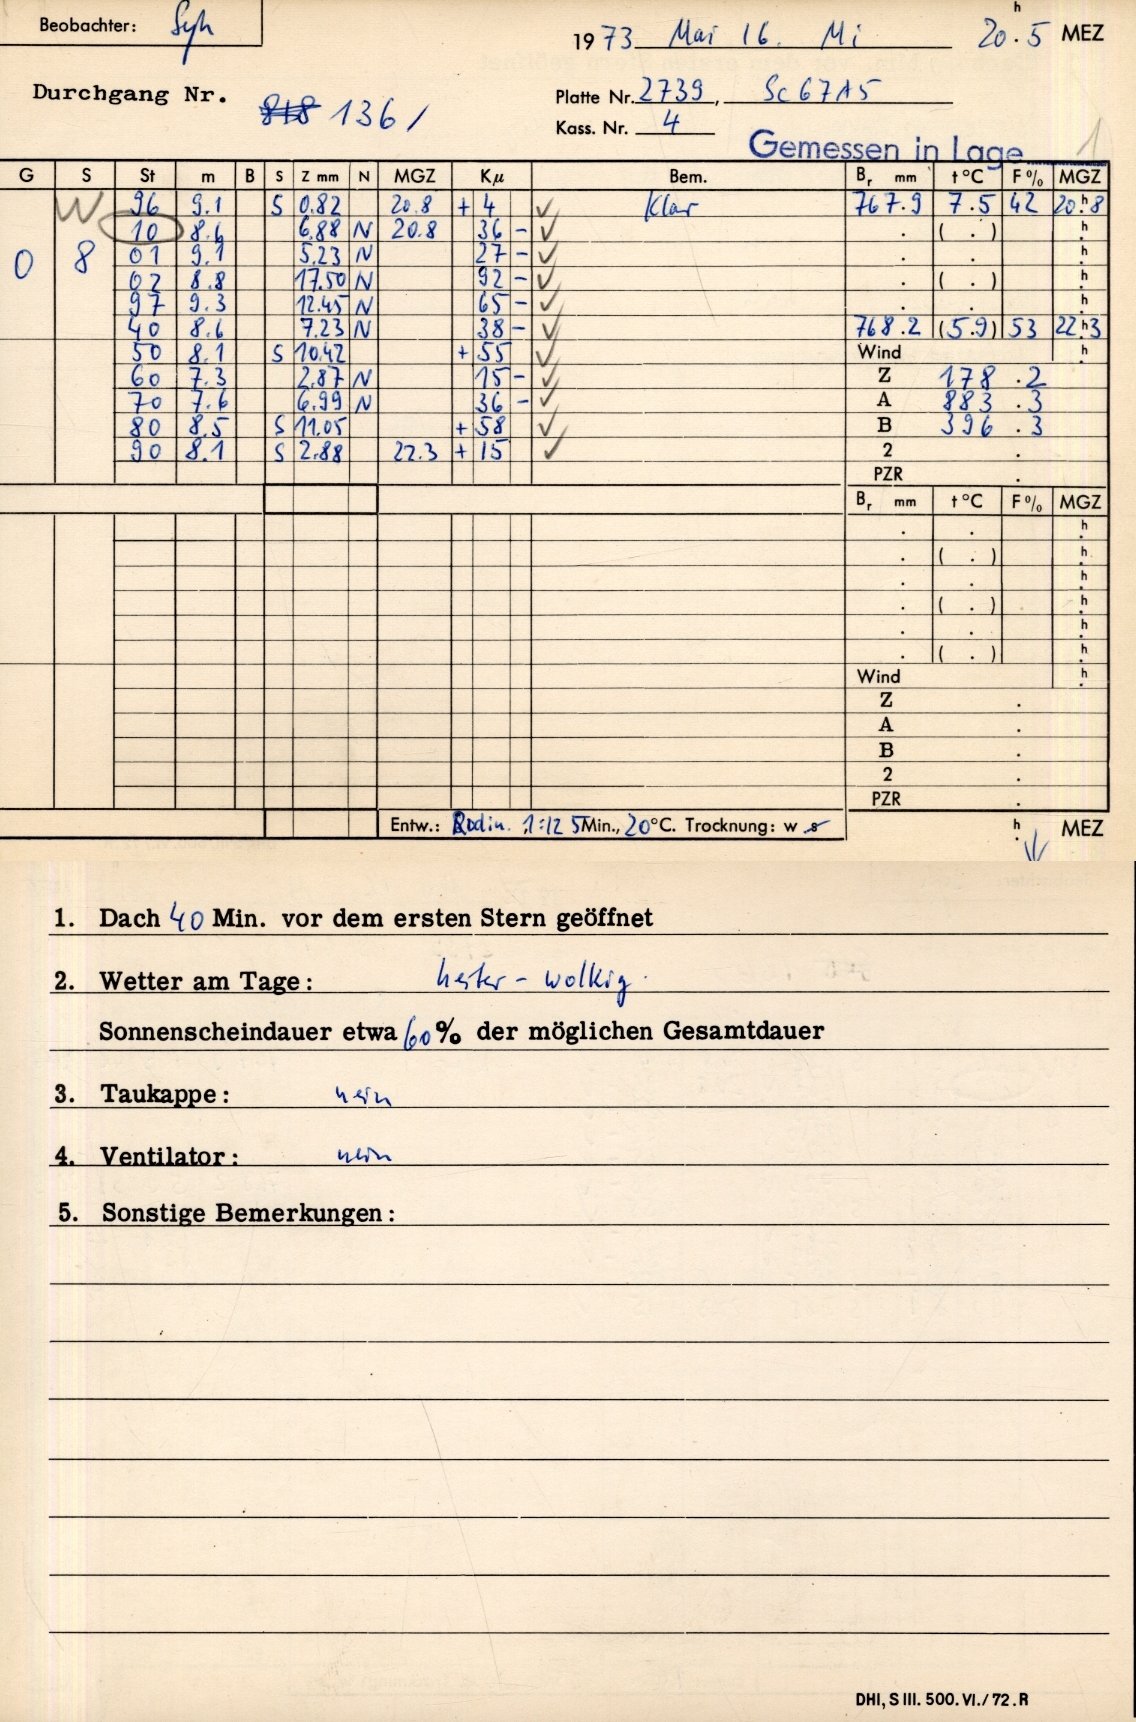 Beobachter: Syh
1973 Mai 16. Mi 20h.5 MEZ
Durchgang Nr. 818 1361
Platte Nr. 2739, Sc67A5
Kass. Nr. 4
Gemessen in Lage 1
G S St m B S Z mm N MGZ Kμ Bem. Br mm t°C F% MGZ
W 96 9.1 S 0.82 20.8 + 4 ✓ Klar 767.9 7.5 42 20h.8
10 8.6 6.88 N 20.8 36 - ✓ . ( . ) h.
0 8 01 9.1 5.23 N 27 - ✓ . . h.
02 8.8 17.50 N 92 - ✓ . ( . ) h.
97 9.3 12.45 N 65 - ✓ . . h.
40 8.6 7.23 N 38 - ✓ 768.2 (5.9) 53 22h.3
50 8.1 S 10.42 + 55 ✓ Wind h.
60 7.3 2.87 N 15 - ✓ Z 178.2
70 7.6 6.99 N 36 - ✓ A 883.3
80 8.5 S 11.05 + 58 ✓ B 396.3
90 8.1 S 2.88 22.3 + 15 ✓ 2 .
PZR .
Br mm t°C F% MGZ
. . h.
. ( . ) h.
. . h.
. ( . ) h.
. . h.
. ( . ) h.
Wind h.
Z .
A .
B .
2 .
PZR .
Entw.: Rodin. 1:12 5 Min., 20°C. Trocknung: w s h. MEZ
1. Dach 40 Min. vor dem ersten Stern geöffnet
2. Wetter am Tage: heiter - wolkig.
Sonnenscheindauer etwa 60% der möglichen Gesamtdauer
3. Taukappe: nein
4. Ventilator: nein
5. Sonstige Bemerkungen:
DHI, S III. 500. VI. / 72. R